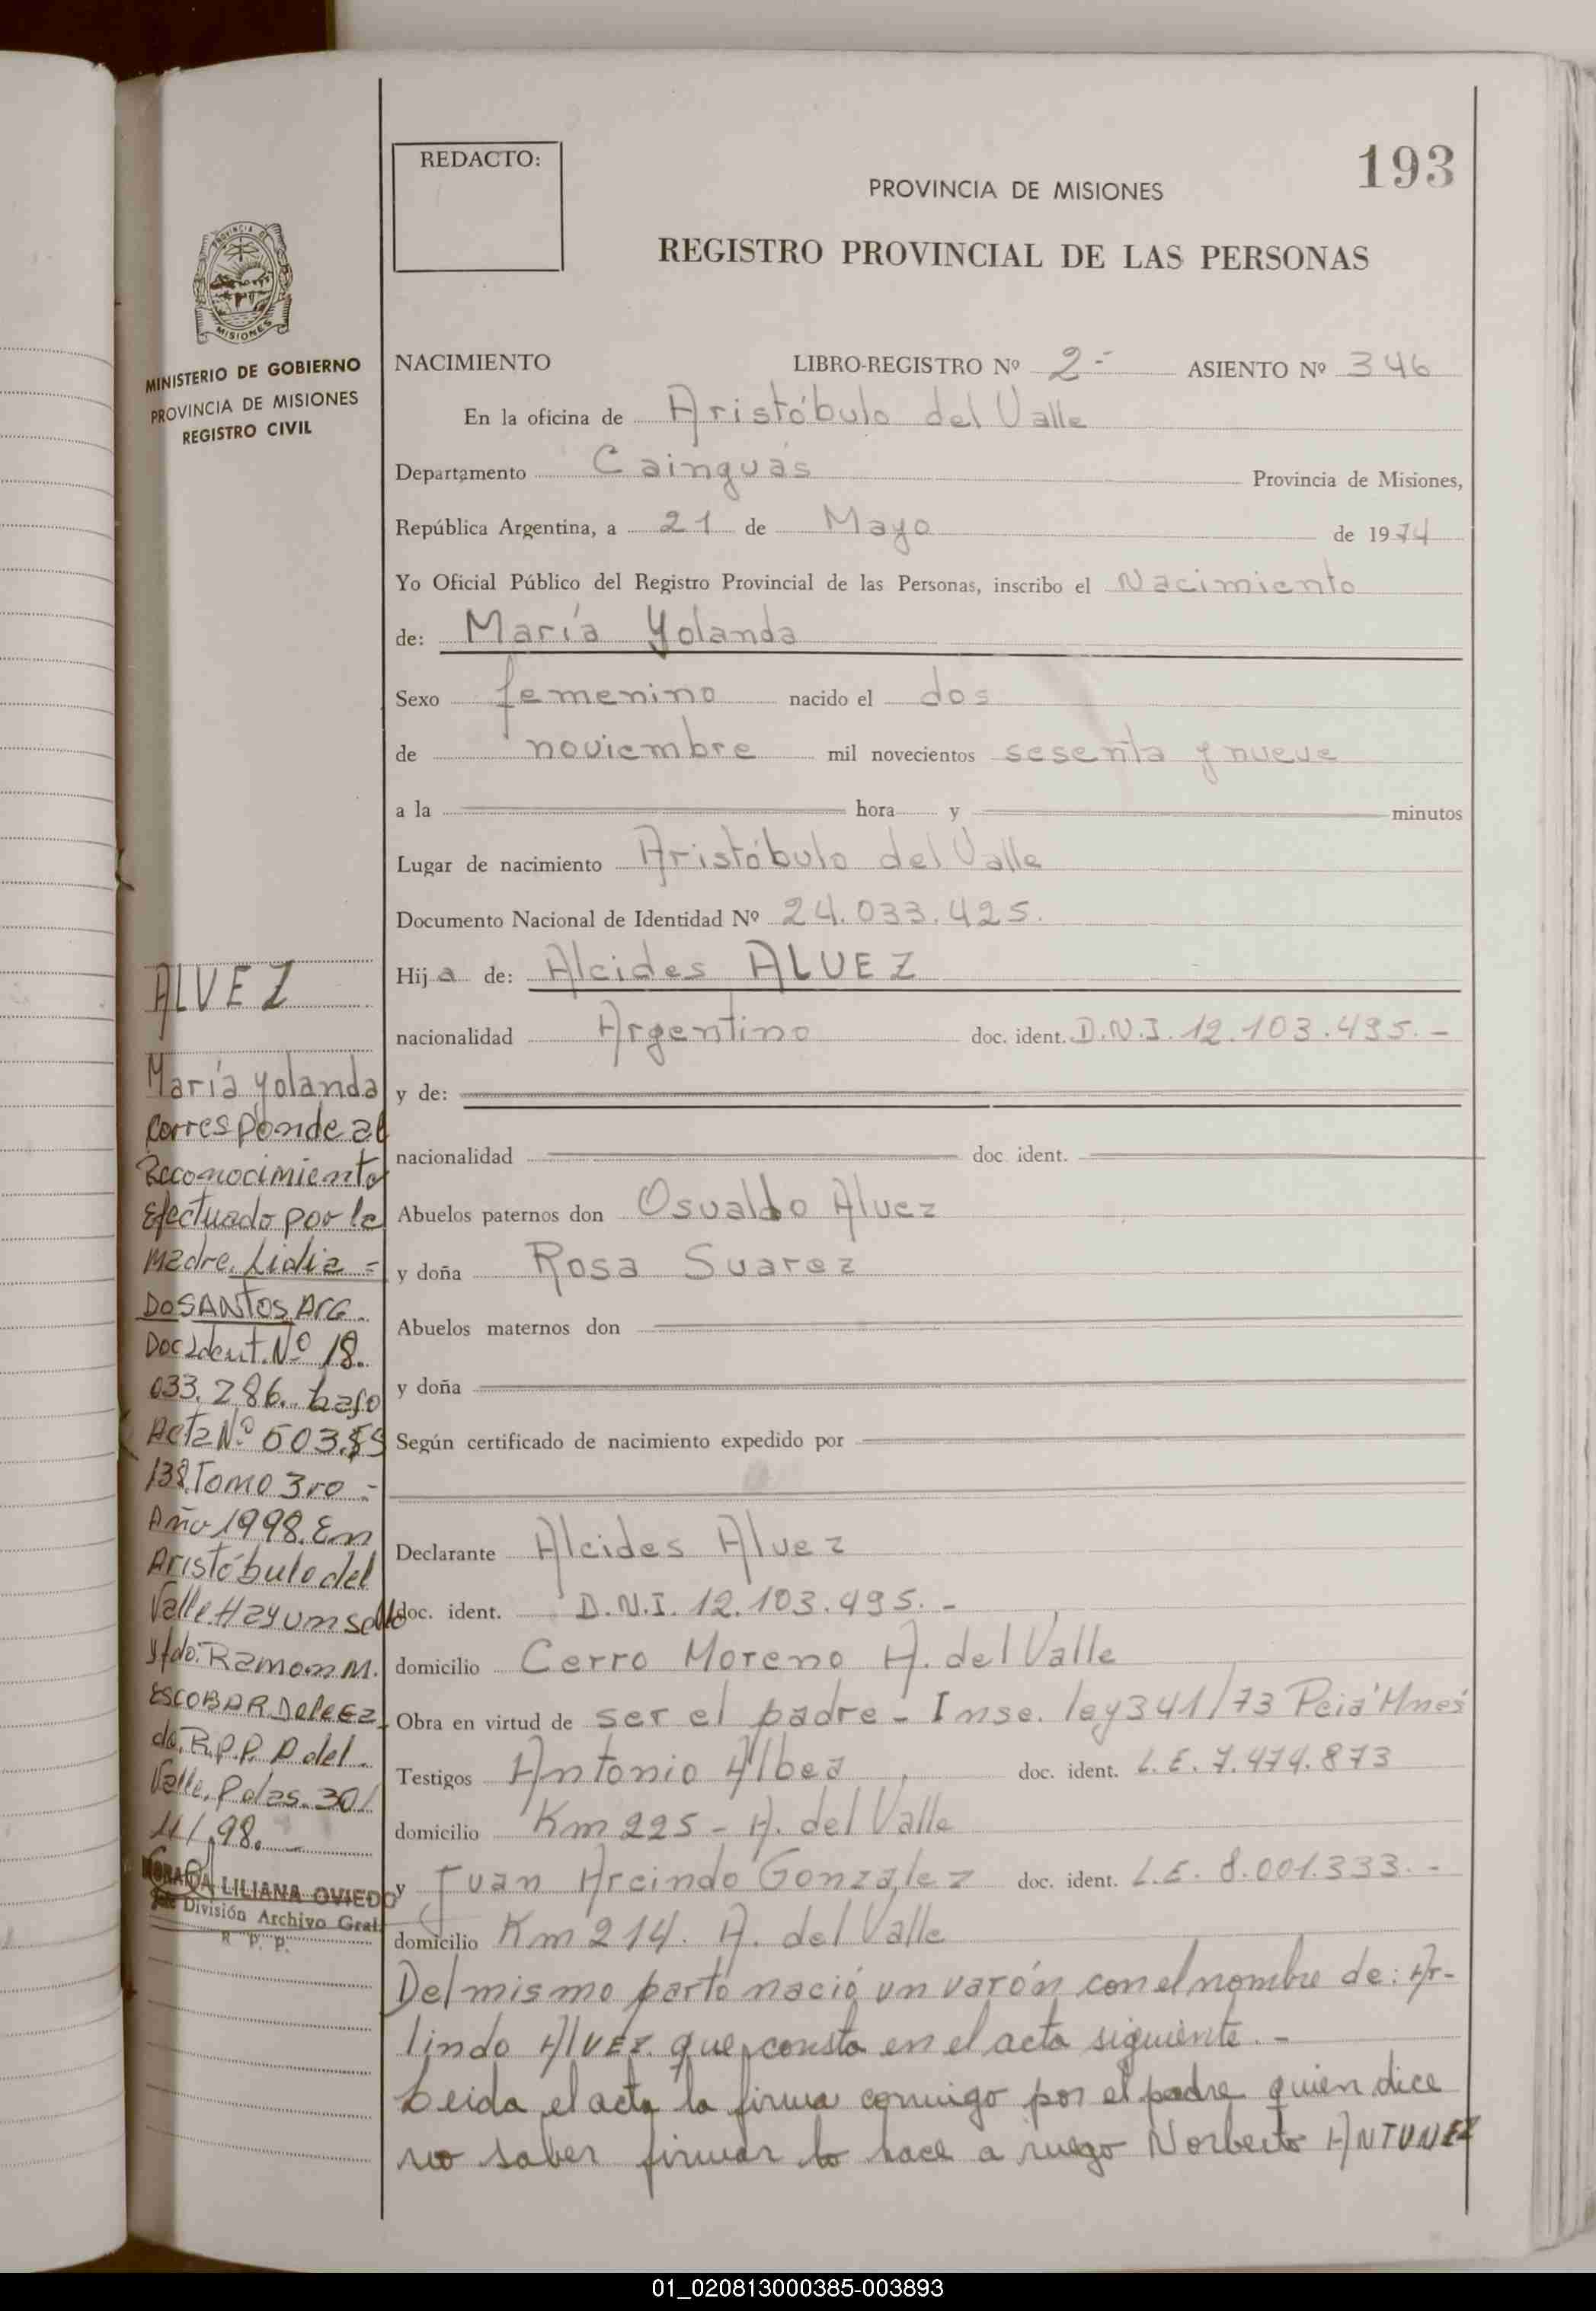 193
REDACTO:
PROVINCIA DE MISIONES
REGISTRO PROVINCIAL DE LAS PERSONAS
PROVINCIA DE
MISIONES
MINISTERIO DE GOBIERNO
PROVINCIA DE MISIONES
REGISTRO CIVIL
NACIMIENTO LIBRO-REGISTRO Nº 2- ASIENTO Nº 346
En la oficina de Aristóbulo del Valle
Departamento Cainguás Provincia de Misiones,
República Argentina, a 21 de Mayo de 1974
Yo Oficial Público del Registro Provincial de las Personas, inscribo el Nacimiento
de: María Yolanda
Sexo femenino nacido el dos
de noviembre mil novecientos sesenta y nueve
a la hora y minutos
Lugar de nacimiento Aristóbulo del Valle
Documento Nacional de Identidad Nº 24.033.425.
Hija de: Alcides ALVEZ
nacionalidad Argentino doc. ident. D.N.I. 12.103.495.-
y de:
nacionalidad doc. ident.
Abuelos paternos don Osvaldo Alvez
y doña Rosa Suarez
Abuelos maternos don
y doña
Según certificado de nacimiento expedido por
Declarante Alcides Alvez
doc. ident. D.N.I. 12.103.495.-
domicilio Cerro Moreno A. del Valle
Obra en virtud de ser el padre - Insc. ley 341/73
Testigos Antonio doc. ident. L.E. 7.474.873
domicilio Km 225 - A. del Valle
y Juan Arcindo Gonzalez doc. ident. L.E. 8.001.333.-
domicilio Km 214. A. del Valle
Del mismo parto nació un varón con el nombre de: Ar-
lindo ALVEZ que consta en el acta siguiente.-
Leida el acta la firma conmigo por el padre quien dice
no saber firmar lo hace a ruego Norberto ANTUNEZ
ALVEZ
María Yolanda
Corresponde al
Reconocimiento
Efectuado por la
madre. Lidia =
DOSANTOS Arg.
Doc Ident. Nº 18.
033.286. bajo
Acta Nº 503.
138. Tomo 3ro =
Año 1998. En
Aristóbulo del
Valle. Hay um sello
y fdo: Ramon M.
ESCOBAR
do. R.P.P. A del.
Valle. Pdas. 30/
11/.98.
LILIANA OVIEDO
Jefe División Archivo Gral.
R. P. P.
01_020813000385-003893